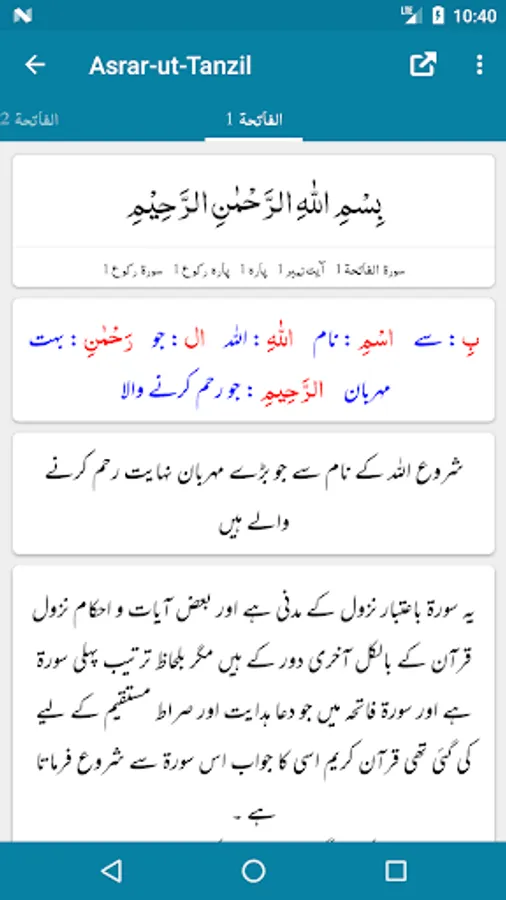 10:40
Asrar-ut-Tanzil
الفاتحة 1
الفاتحة 2
بِسْمِ اللّٰهِ الرَّحْمٰنِ الرَّحِيْمِ
سورة الفاتحة 1 آیت نمبر 1 پارہ 1 پارہ رکوع 1 سورة رکوع 1
بِ : سے اسْمِ : نام اللّٰهِ : اللہ ال : جو رَحْمٰنِ : بہت
مہربان الرَّحِيمِ : جو رحم کرنے والا
شروع اللہ کے نام سے جو بڑے مہربان نہایت رحم کرنے
والے ہیں
یہ سورة باعتبار نزول کے مدنی ہے اور بعض آیات و احکام نزول
قرآن کے بالکل آخری دور کے ہیں مگر بلحاظ ترتیب پہلی سورة
ہے اور سورة فاتحہ میں جو دعا ہدایت اور صراط مستقیم کے لیے
کی گئی تھی قرآن کریم اسی کا جواب اس سورة سے شروع فرماتا
ہے ۔